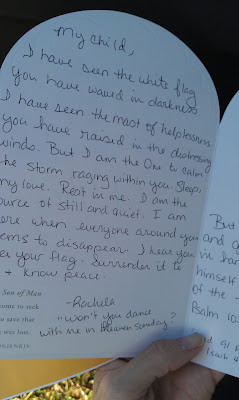 My child,
I have seen the white flag
you have waved in darkness
I have seen the mast of helplessness
you have raised in the distressing
winds. But I am the One to calm
the storm raging within you. Sleep,
my love. Rest in me. I am the
source of still and quiet. I am
here when everyone around you
seems to disappear. I hear you
your flag. Surrender it to
+ know peace.
-Rachela
"won't you dance
with me in Heaven someday?
Son of Man
come to seek
to save that
was lost.
But
and
in har
himself
of the
Psalm 107